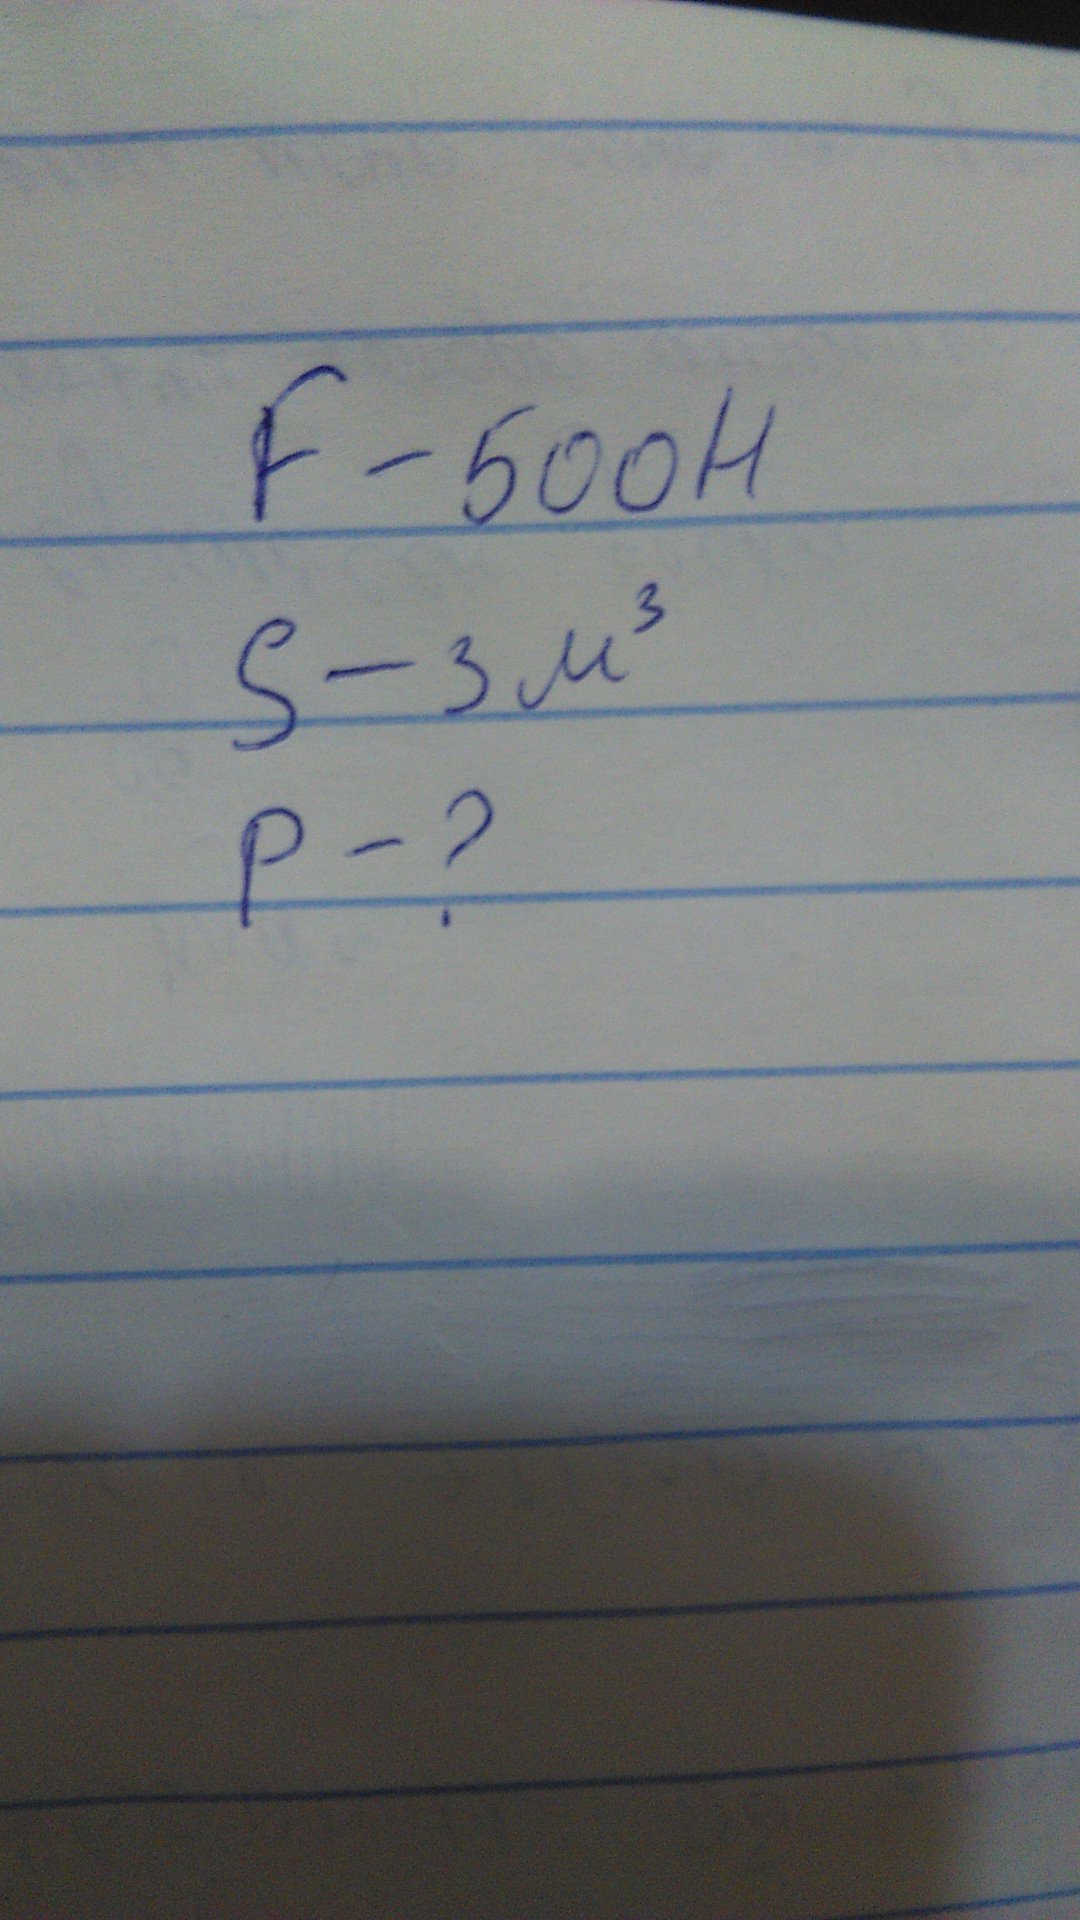 F - 500Н
S - 3 м³
P - ?